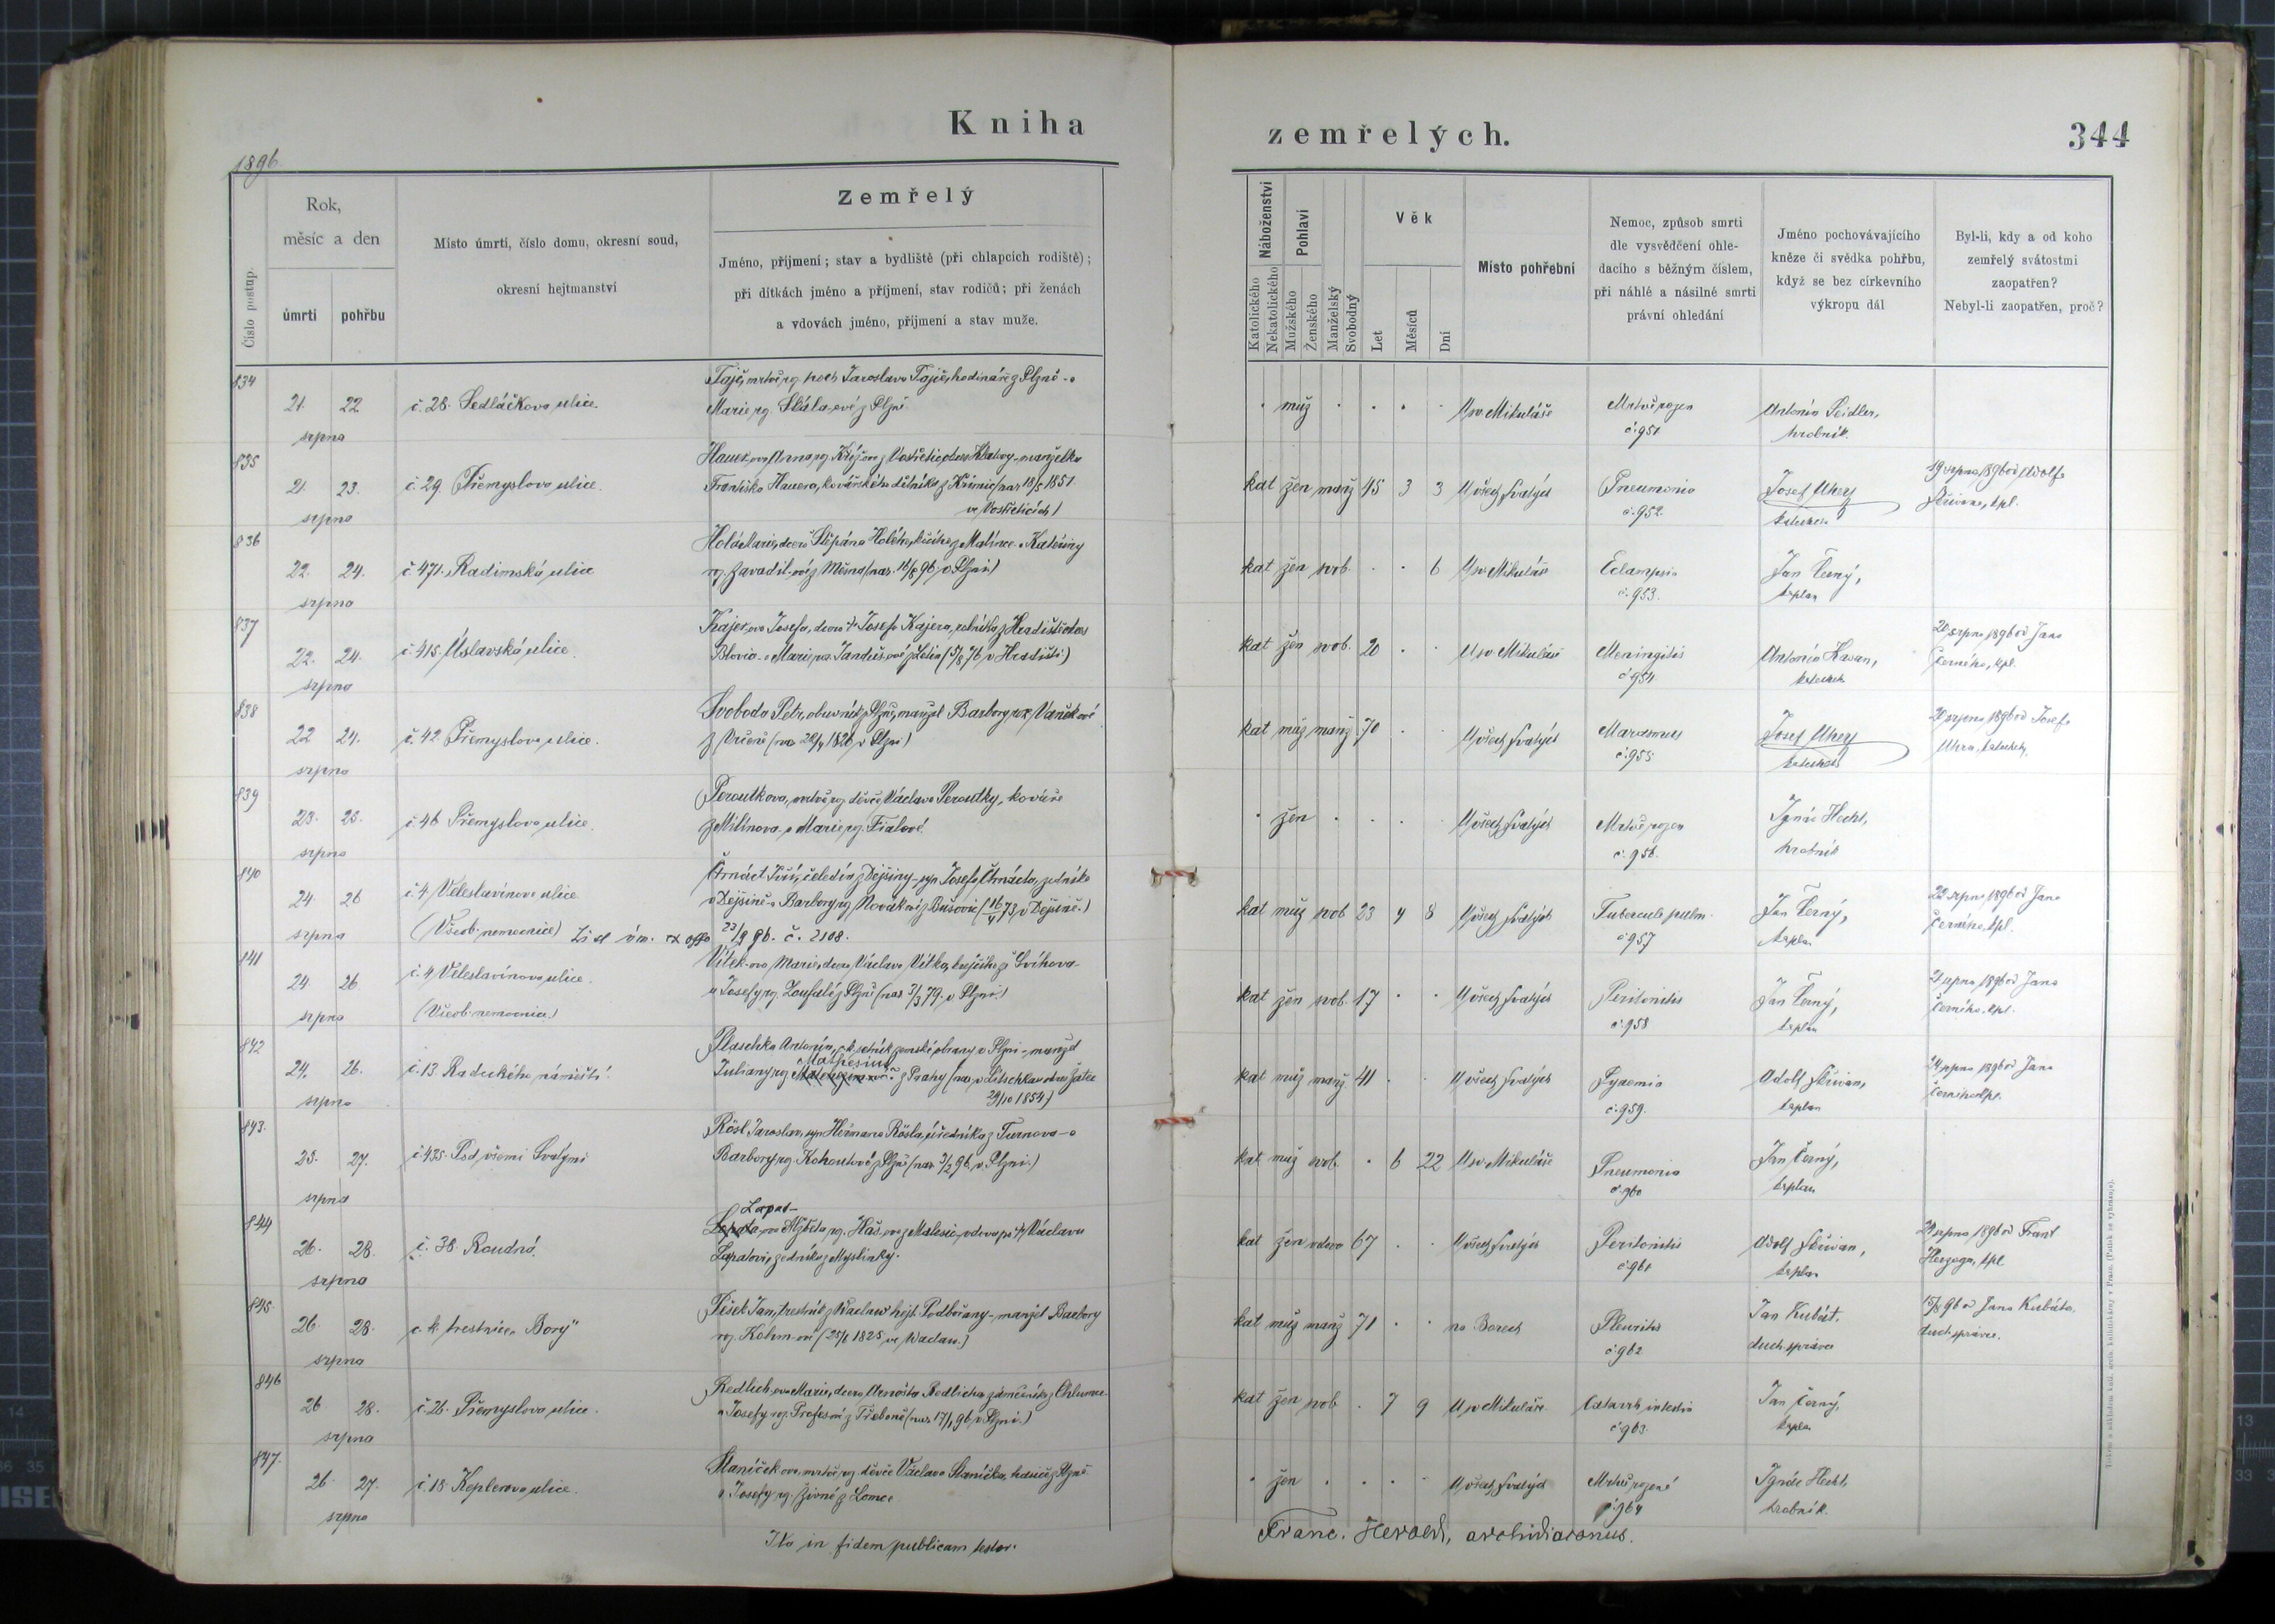 Kniha
zemřelých.
344
1896.
Číslo postup.
Rok,
měsíc a den
úmrtí
pohřbu
Místo úmrtí, číslo domu, okresní soud,
okresní hejtmanství
Zemřelý
Jméno, příjmení; stav a bydliště (při chlapcích rodiště);
při dítkách jméno a příjmení, stav rodičů; při ženách
a vdovách jméno, příjmení a stav muže.
Náboženství
Katolického
Nekatolického
Pohlaví
Mužského
Ženského
Manželský
Svobodný
Věk
Let
Měsíců
Dní
Místo pohřební
Nemoc, způsob smrti
dle vysvědčení ohle-
dacího s běžným číslem,
při náhlé a násilné smrti
právní ohledání
Jméno pochovávajícího
kněze či svědka pohřbu,
když se bez církevního
výkropu dál
Byl-li, kdy a od koho
zemřelý svátostmi
zaopatřen?
Nebyl-li zaopatřen, proč?
834
21. 22 srpna
č. 28. Sedláčkova ulice.
mrtvě roz. hoch Jaroslava hodináře z Plzně a
Marie roz. Skála-ové z Plzně
muž
U sv. Mikuláše
Mrtvě rozen
č. 951
Antonín Seidler,
hrobník.
835
21. 23. srpna
č. 29. Přemyslova ulice.
Hauer-ova Anna roz. z manželka
Františka Hauera, kovářského dělníka z Křimic (nar. 18/5 1851
ve Vostřeticích)
kat žen manž 45 3 3
U všech Svatých
Pneumonia
č. 952.
Josef Uher
katecheta
19 srpna 1896 od Adolfa
Skřivana, kpl.
836
22. 24. srpna
č. 471. Radimská ulice
Holá Marie, dcera Štěpána Holého, z Malince a Kateřiny
roz. Zavadil-ové z (nar. 16/8 96 v Plzni)
kat žen svob. 6
U sv. Mikuláše
Eclampsia
č. 953.
Jan Černý,
kaplan
837
22. 24. srpna
č. 415. Úslavská ulice.
Kajer-ova Josefa, dcera Josefa Kajera, rolníka z Hradiště okres
Blovic a Marie roz. Janduš-ové z Letin (5/8 76 v Hradišti)
kat žen svob. 20
U sv. Mikuláše
Meningitis
č. 954
Antonín Hasan,
katecheta
20 srpna 1896 od Jana
Černého, kpl.
838
22 24. srpna
č. 42 Přemyslova ulice.
Svoboda Petr, obuvník z Plzně, manžel Barbory roz. Vaňkové
z Vrčeně (nar. 1826 v Plzni)
kat muž manž 70
U všech Svatých
Marasmus
č. 955.
Josef Uher
katecheta
20 srpna 1896 od Josefa
Uhra, katechety.
839
23. 25. srpna
č. 46 Přemyslova ulice.
Peroutkova, mrtvě roz. děvče Václava Peroutky, kováře
z Milínova a Marie roz. Fialové.
žen
U všech Svatých
Mrtvě rozen
č. 956.
Ignác Hecht,
hrobník
840
24. 26 srpna
č. 4 Veleslavínova ulice
(Všeob. nemocnice)
Črnáct Jiří, čeledín z Dejšiny, syn Josefa Črnácta, zedníka
v Dejšině a Barbory roz. Novákové z Bušovic (16/4 73 v Dejšině.)
List úm. ex offo 23/9 96. č. 2108.
kat muž svob 23 4 8
U všech Svatých
Tubercul. pulm.
č. 957
Jan Černý,
kaplan
22 srpna 1896 od Jana
Černého, kpl.
841
24. 26 srpna
č. 4 Veleslavínova ulice.
(Všeob. nemocnice)
Vítek-ova Marie, dcera Václava Vítka, krejčího z Švihova
a Josefy roz. Zoufalé z Plzně (nar. 3/3 79. v Plzni.)
kat žen svob. 17
U všech Svatých
Peritonitis
č. 958
Jan Černý,
kaplan
21 srpna 1896 od Jana
Černého, kpl.
842
24. 26. srpna
č. 13 Radeckého náměstí.
Plaschka Antonín, c. k. setník zemské obrany v Plzni, manžel
Juliany roz. Mathesius z Prahy (nar. v Litschkau okres Žatec
29/10 1854)
kat muž manž. 41
U všech Svatých
Pyaemia
č. 959.
Adolf Skřivan,
kaplan
24 srpna 1896 od Jana
Černého, kpl.
843.
25. 27. srpna
č. 435. Pod všemi Svatými
Rösl Jaroslav, syn Heřmana Rösla, úředníka z Turnova a
Barbory roz. Kohoutové z Plzně (nar. 3/2 96. v Plzni.)
kat muž svob. 6 22
U sv. Mikuláše
Pneumonia
č. 960
Jan Černý,
kaplan
844
26. 28. srpna
č. 38. Roudná.
Lapat-
ova Alžběta roz. Haš-ová z Malesic, vdova po Václavu
Lapatovi, zedníku z Myslinky.
kat žen vdova 67
U všech Svatých
Peritonitis
č. 961
Adolf Skřivan,
kaplan
24 srpna 1896 od Frant.
Herzoga, kpl.
845.
26. 28. srpna
c. k. trestnice „Bory"
Pešek Jan, trestník z Waclaw hejt. Podbořany, manžel Barbory
roz. Kohm-ové (25/6 1825 ve Waclaw.)
kat muž manž 71
na Borech
Pleuritis
č. 962
Jan Kubát,
duch. správce
15/8 96 od Jana Kubáta,
duch. správce.
846
26 28. srpna
č. 26. Přemyslova ulice.
Redlich-ova Marie, dcera Arnošta Redlicha, zámečníka z Chlumce
a Josefy roz. Profes-ové z Třeboně (nar. 17/1 96 v Plzni.)
kat žen svob. 7 9
U sv. Mikuláše
Catarrh intestin.
č. 963.
Jan Černý,
kaplan
847.
26. 27. srpna
č. 18. Keplerova ulice.
Staníček-ova, mrtvě roz. děvče Václava Staníčka, hasiče z Plzně
a Josefy roz. Živné z Lomce
žen
U všech Svatých
Mrtvě rozené
č. 964
Ignác Hecht,
hrobník.
Ita in fidem publicam testor.
Franc. Herold, archidiaconus.